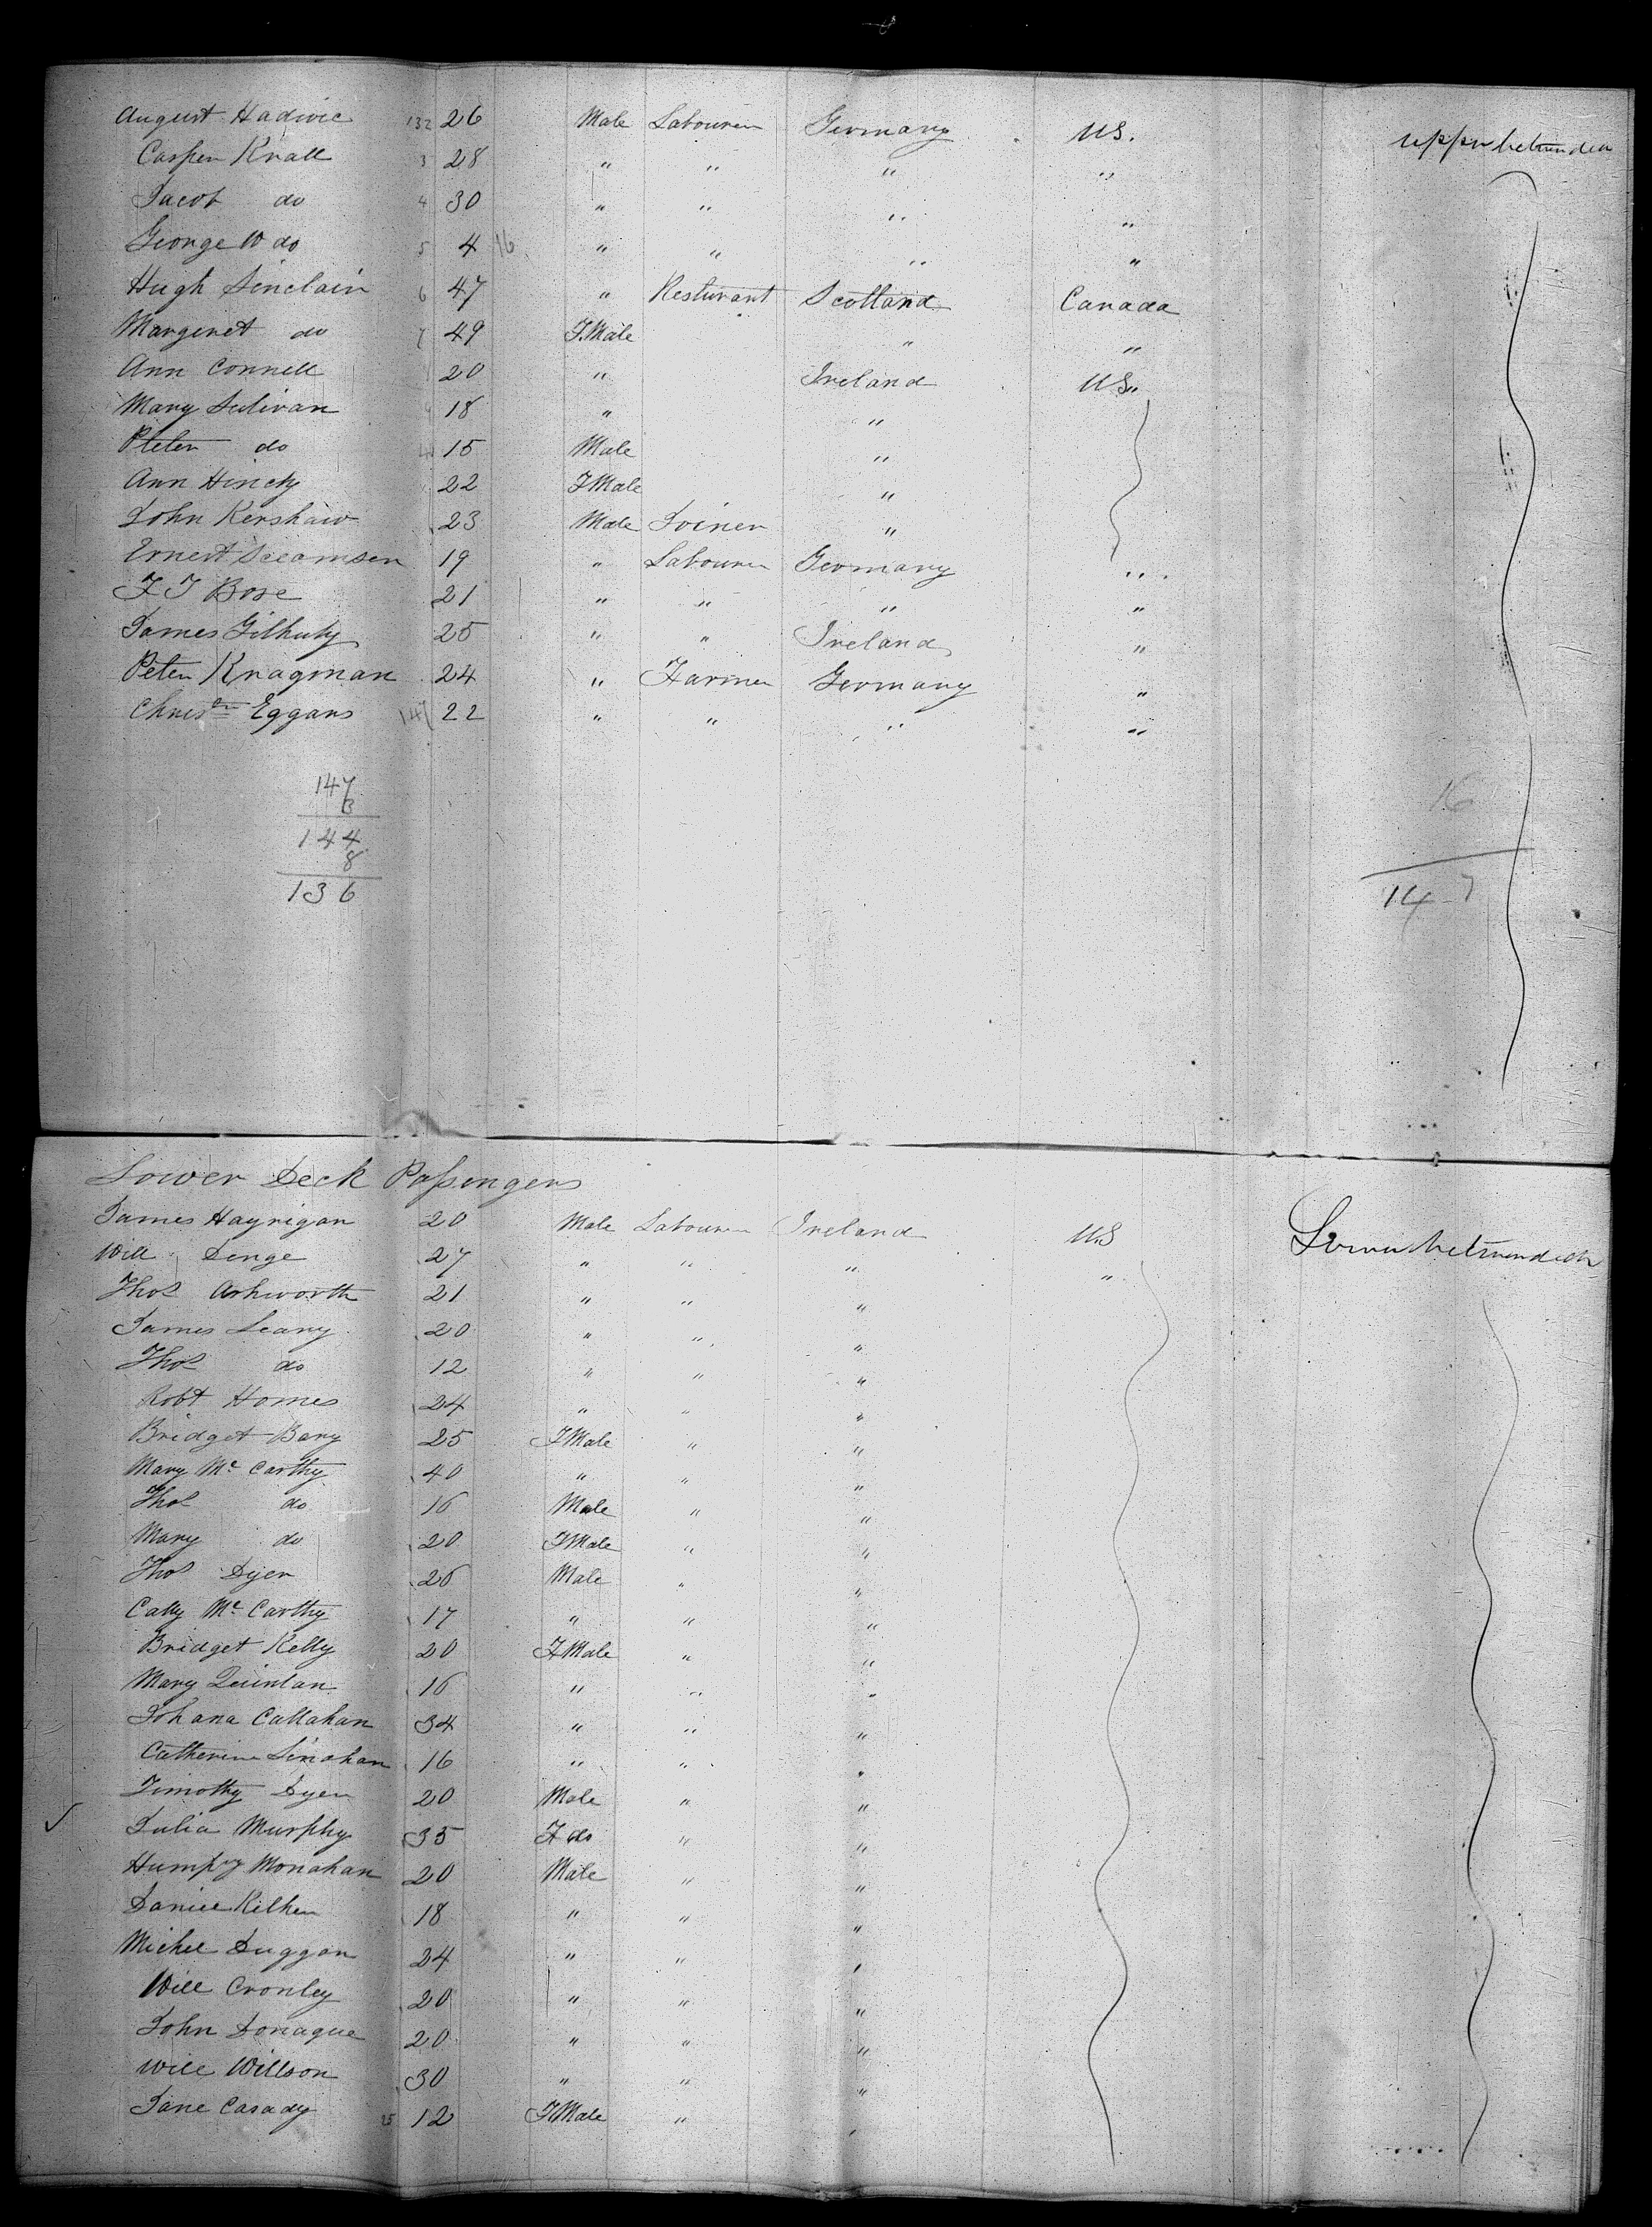 August Hadwic 132 26 Male Labourer Germany U.S. upper between deck
Casper Knall 3 28 " " " "
Jacob do 4 30 " " " "
George W do 5 4 16 " " " "
Hugh Sinclair 6 47 " Resturant Scotland Canada
Margeret do 7 49 F.Male " "
Ann Connell 20 " Ireland U.S.
Mary Sulivan 18 " "
Peter do 15 Male "
Ann Hinchy 22 FMale "
John Kershaw 23 Male Joiner "
Ernest 19 " Labourer Germany "
F J Bose 21 " " " "
James Gilhuly 25 " " Ireland "
Peter Kragman 24 " Farmer Germany "
Christen Eggars 147 22 " " " "
147
3
144
8
136
16
147
Lower Deck Passengers
James Hayrigan 20 Male Labourer Ireland U.S Lower between deck
Will Denge 27 " " " "
Thos Ashworth 21 " " "
James Leary 20 " " "
Thos do 12 " " "
Robt Homes 24 " " "
Bridget Bary 25 FMale " "
Mary Mc Carthy 40 " " "
Thos do 16 Male " "
Mary do 20 FMale " "
Thos Dyer 26 Male " "
Cally Mc Carthy 17 " " "
Bridget Kelly 20 FMale " "
Mary Quinlan 16 " " "
Johana Callahan 34 " " "
Catherine Linahan 16 " " "
Timothy Dyer 20 Male " "
Julia Murphy 35 F do " "
Humpry Monahan 20 Male " "
Daniel Kilher 18 " " "
Michel Duggan 24 " " "
Will Cronley 20 " " "
John Donague 20 " " "
Will Willson 30 " " "
Jane Casady 25 12 FMale " "